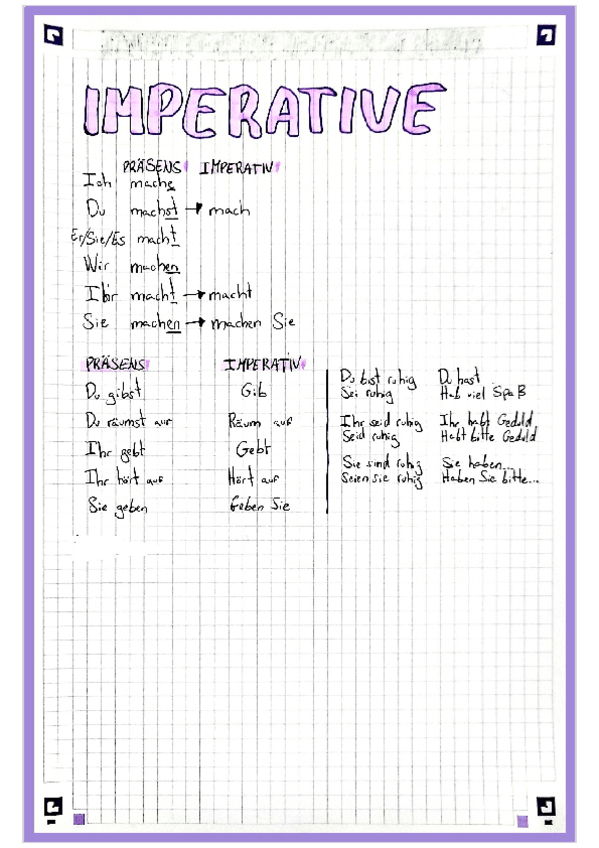 IMPERATIVE
PRÄSENS IMPERATIV
Ich mache
Du machst → mach
Er/Sie/Es macht
Wir machen
Ihr macht → macht
Sie machen → machen Sie
PRÄSENS IMPERATIV
Du gibst Gib
Du räumst auf Räum auf
Ihr gebt Gebt
Ihr hört auf Hört auf
Sie geben Geben Sie
Du bist ruhig
Sei ruhig
Ihr seid ruhig
Seid ruhig
Sie sind ruhig
Seien sie ruhig
Du hast
Hab viel Spaß
Ihr habt Geduld
Habt bitte Geduld
Sie haben...
Haben Sie bitte...